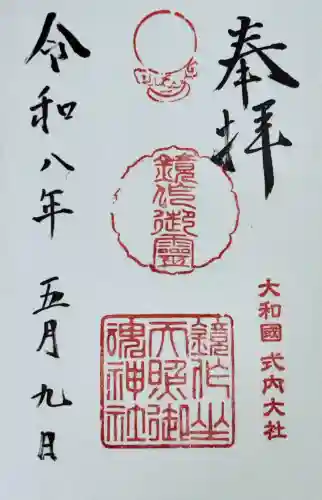 奉拝
大和國 式内大社
鏡作御靈
鏡作坐
天照御
魂神社
令和八年 五月九日